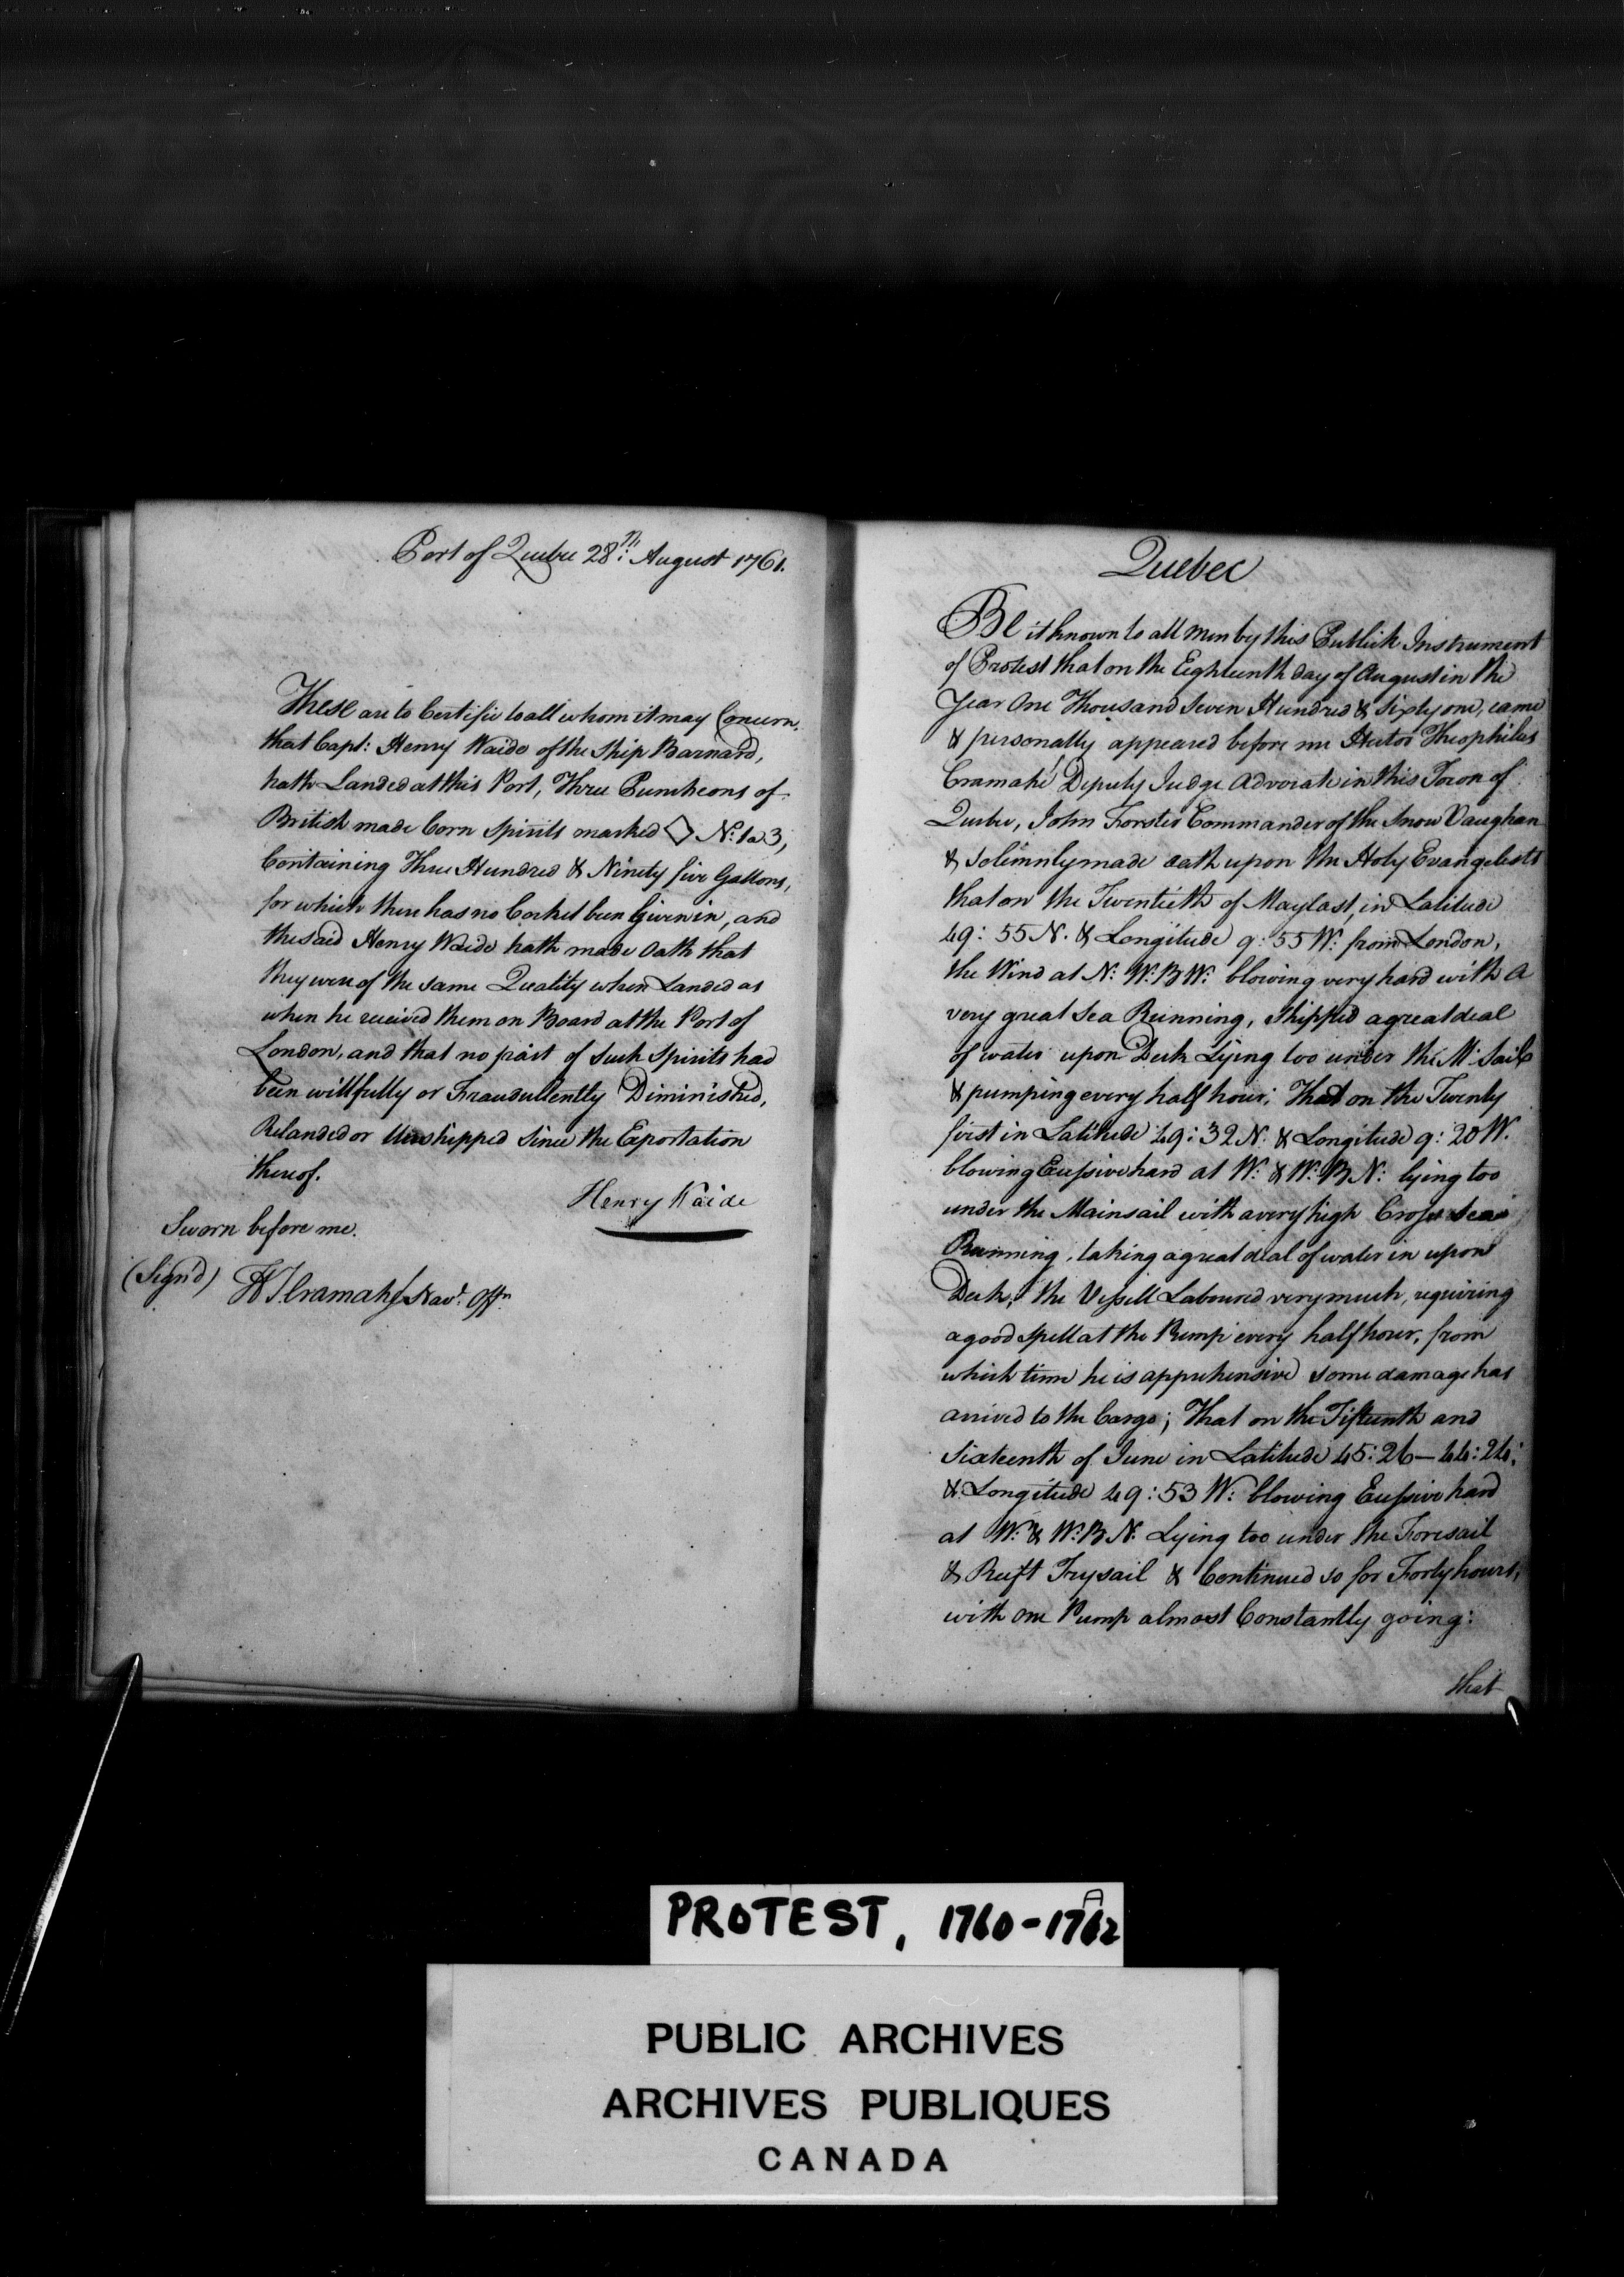 Port of Quebec 28th: August 1761.
These are to Certifie to all whom it may Concern,
that Capt: Henry Waide of the Ship Barnard,
hath Landed at this Port, Three Puncheons of
British made Corn Spirits marked ◇ No: 1 a 3,
Containing Three Hundred & Ninety five Gallons,
for which there has no Cocket been Given in, and
the said Henry Waide hath made Oath that
they were of the same Quality when Landed as
when he received them on Board at the Port of
London, and that no part of such Spirits had
been willfully or Fraudullently Diminished,
Relanded or Unshipped Since the Exportation
thereof.
Henry Waide
Sworn before me.
(Sign'd) HT Cramahé Nav.l Offr.
Quebec
BE it known to all men by this Publick Instrument
of Protest that on the Eighteenth day of August in the
Year One Thousand Seven Hundred & Sixty one, came
& personally appeared before me Hector Theophilus
Cramahé, Deputy Judge Advocate in this Town of
Quebec, John Forster Commander of the Snow Vaughan
& solemnly made oath upon the Holy Evangelists
that on the Twentieth of May last, in Latitude
49: 55 N. & Longitude 9: 55 W: from London,
the Wind at N: W: B W: blowing very hard with a
very great Sea Running, Shipped a great deal
of water upon Deck Lying too under the M: Sail
& pumping every half hour; That on the Twenty
first in Latitude 49: 32 N. & Longitude 9: 20 W.
blowing Excessive hard at W: & W: B N: lying too
under the Mainsail with a very high Cross Sea
Running, taking a great deal of water in upon
Deck; the Vessell Laboured very much, requiring
a good Spell at the Pump every half hour, from
which time he is apprehensive some damage has
arrived to the Cargo; That on the Fifteenth and
Sixteenth of June in Latitude 45: 26 — 44: 24:
& Longitude 49: 53 W: blowing Excessive hard
at W: & W: B N. Lying too under the Foresail
& Reeft Trysail & Continued so for Forty hours,
with one Pump almost Constantly going:
that
PROTEST, 1760-1762
A
PUBLIC ARCHIVES
ARCHIVES PUBLIQUES
CANADA